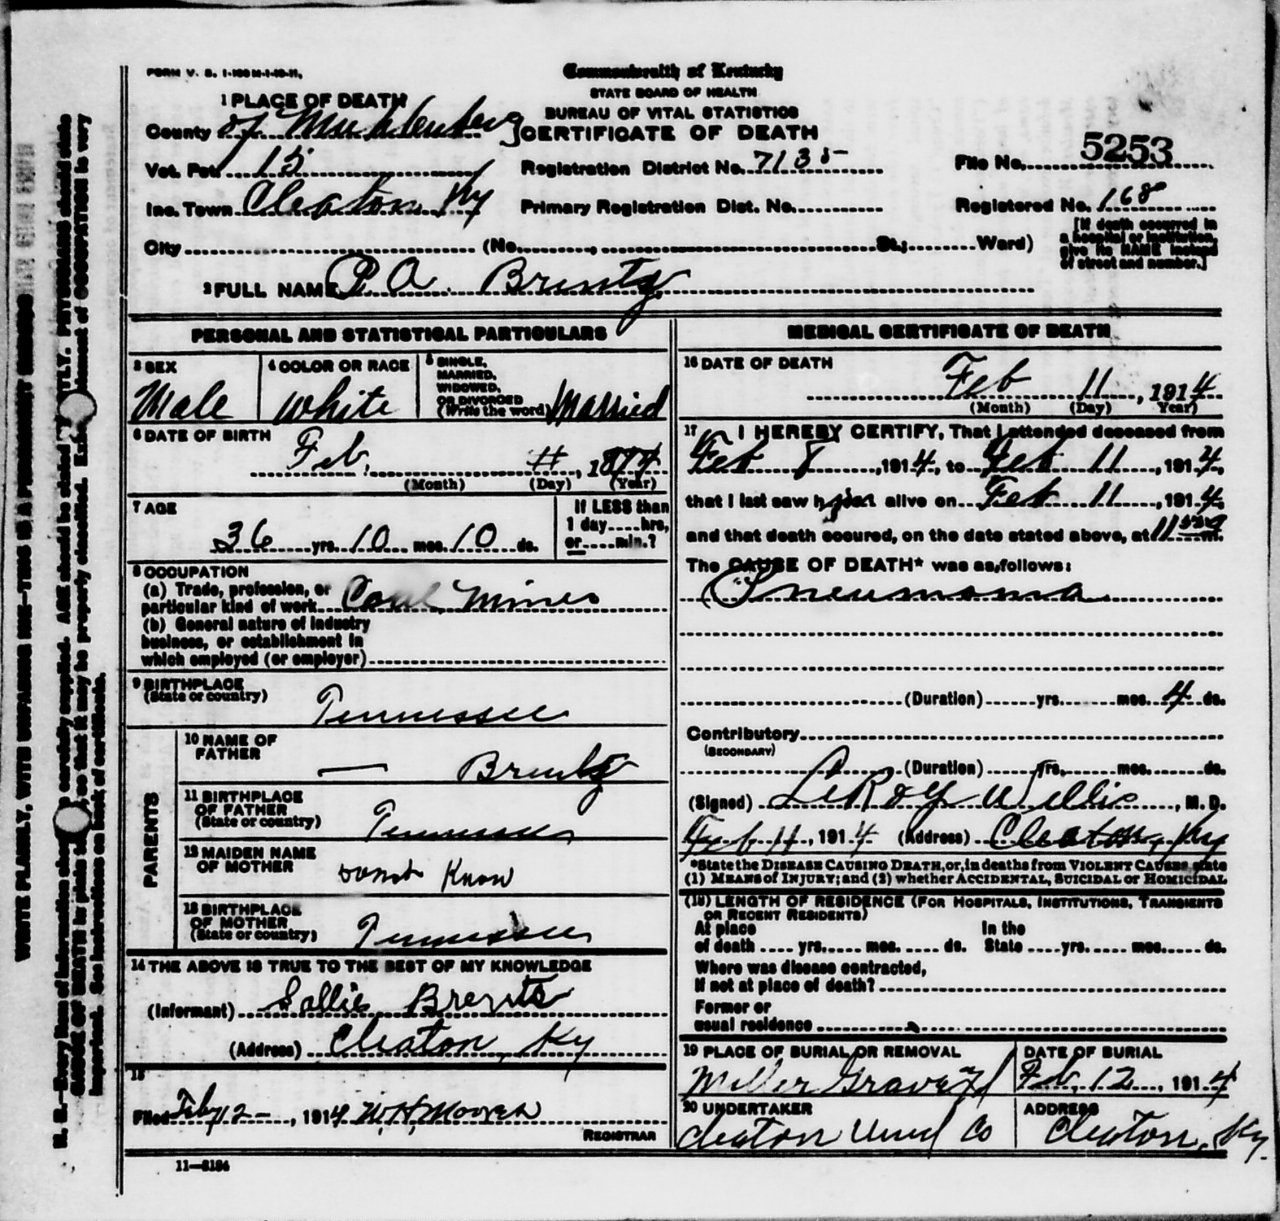 FORM V. S. 1-100M-1-10-11.
Commonwealth of Kentucky
STATE BOARD OF HEALTH
BUREAU OF VITAL STATISTICS
CERTIFICATE OF DEATH
1 PLACE OF DEATH
County of Muhlenberg
Vot. Pct 15
Registration District No. 7135
File No. 5253
Inc. Town Cleaton Ky
Primary Registration Dist. No.
Registered No. 168
City (No. St.; Ward)
[If death occurred in
a hospital or institution,
give its NAME instead
of street and number.]
2 FULL NAME P A Brentz
PERSONAL AND STATISTICAL PARTICULARS
3 SEX
Male
4 COLOR OR RACE
White
5 SINGLE,
MARRIED,
WIDOWED,
OR DIVORCED
(Write the word) Married
6 DATE OF BIRTH
Feb. , 1874
(Month) (Day) (Year)
7 AGE
36 yrs. 10 mos. 10 ds.
If LESS than
1 day hrs,
or min.?
8 OCCUPATION
(a) Trade, profession, or
particular kind of work Coal Miner
(b) General nature of industry
business, or establishment in
which employed (or employer)
9 BIRTHPLACE
(State or country)
Tennessee
PARENTS
10 NAME OF
FATHER
— Brentz
11 BIRTHPLACE
OF FATHER
(State or country)
Tennessee
12 MAIDEN NAME
OF MOTHER
dont Know
13 BIRTHPLACE
OF MOTHER
(State or country)
Tennessee
14 THE ABOVE IS TRUE TO THE BEST OF MY KNOWLEDGE
(Informant) Sallie Brents
(Address) Cleaton, Ky
15
Filed Feby 12 , 1914 W.H. Moores
REGISTRAR
11—3184
MEDICAL CERTIFICATE OF DEATH
16 DATE OF DEATH
Feb 11 , 1914
(Month) (Day) (Year)
17 I HEREBY CERTIFY, That I attended deceased from
Feb 8 , 1914, to Feb 11 , 1914,
that I last saw him alive on Feb 11 , 1914,
and that death occured, on the date stated above, at 11 m.
The CAUSE OF DEATH* was as follows:
Pneumonia
(Duration) yrs. mos. 4 ds.
Contributory
(SECONDARY)
(Duration) yrs. mos. ds.
(Signed) LeRoy Willis , M. D.
Feb 11, 1914 (Address) Cleaton, Ky
*State the DISEASE CAUSING DEATH, or, in deaths from VIOLENT CAUSES, state
(1) MEANS of INJURY; and (2) whether ACCIDENTAL, SUICIDAL or HOMICIDAL
(18) LENGTH OF RESIDENCE (FOR HOSPITALS, INSTITUTIONS, TRANSIENTS
OR RECENT RESIDENTS)
At place
of death yrs. mos. ds.
In the
State yrs. mos. ds.
Where was disease contracted,
If not at place of death?
Former or
usual residence
19 PLACE OF BURIAL OR REMOVAL
Miller Grave Yd
DATE OF BURIAL
Feb. 12 , 1914
20 UNDERTAKER
Cleaton Und Co
ADDRESS
Cleaton, Ky.
WRITE PLAINLY, WITH UNFADING INK—THIS IS A PERMANENT RECORD
N. B.—Every item of information should be carefully supplied. AGE should be stated EXACTLY. PHYSICIANS should state
CAUSE OF DEATH in plain terms, so that it may be properly classified. Exact statement of OCCUPATION is very
important. See instructions on back of certificate.